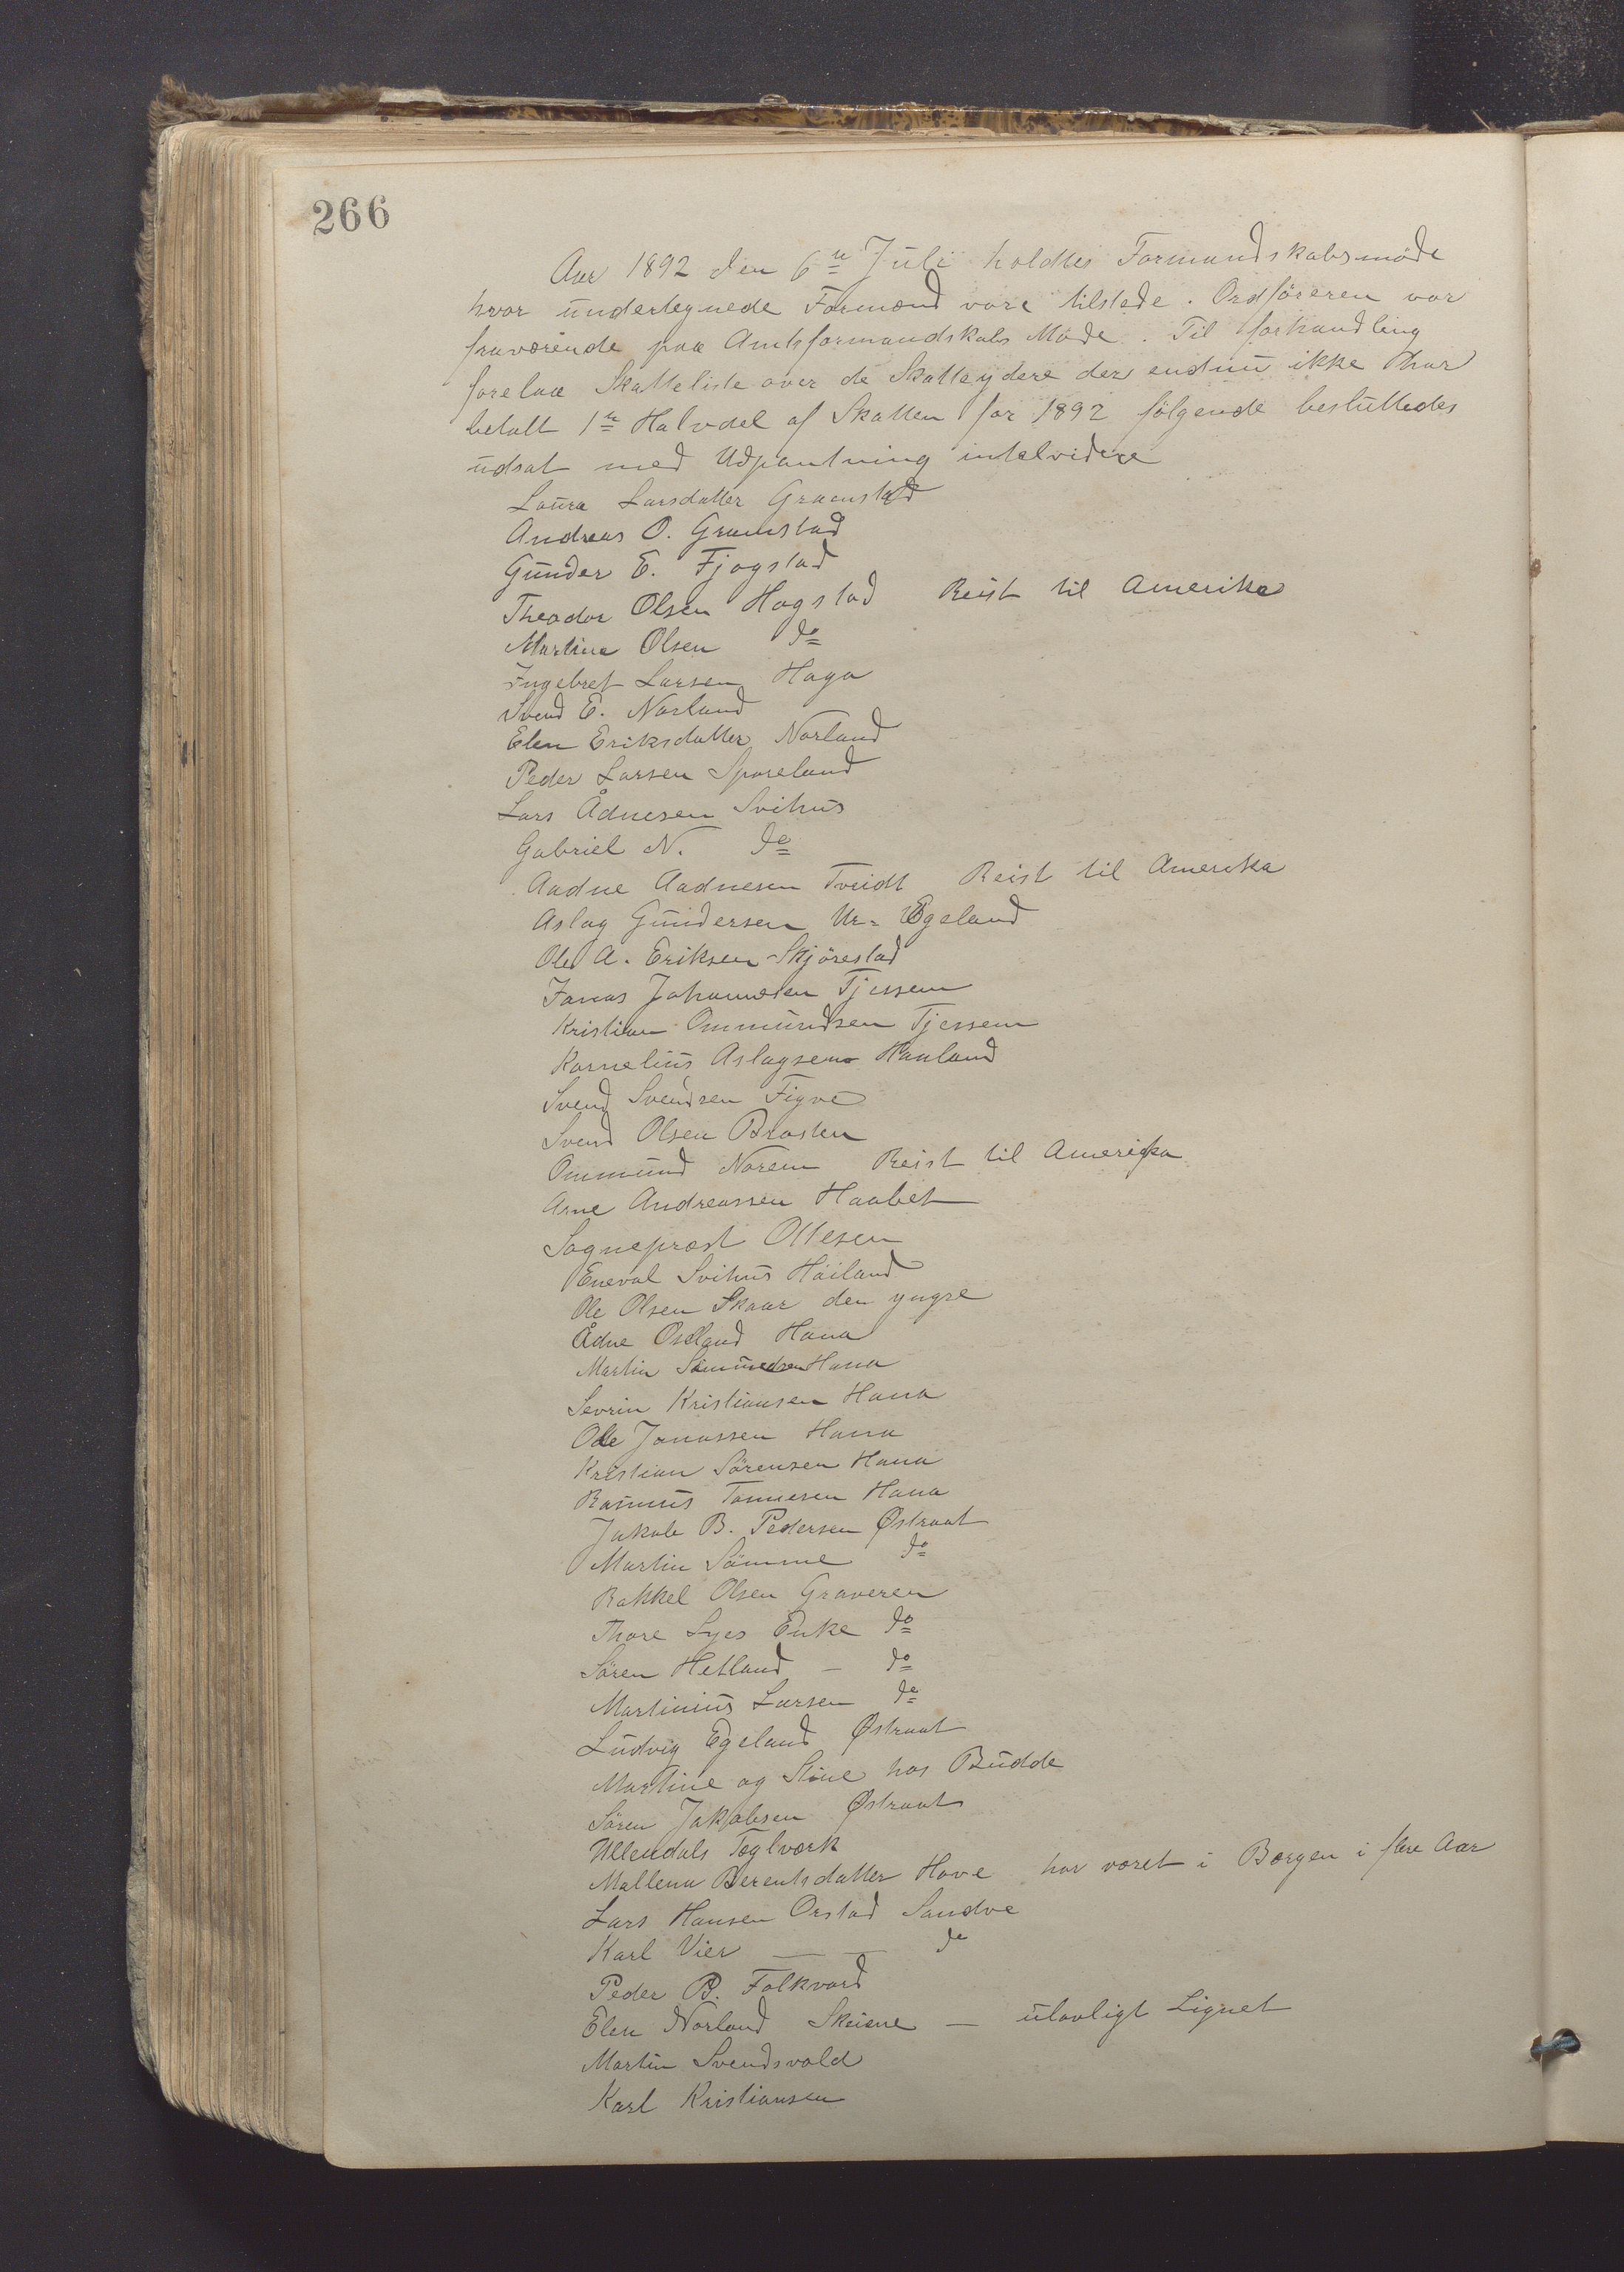 266
Aar 1892 den 6te Juli holdtes Formandskabsmöde
hvor undertegnede Formænd vare tilstede. Ordföreren var
fraværende paa Amtsformandskabs Möde. Til forhandling
forelaa Skatteliste over de Skatteydere der endnu ikke har
betalt 1te Halvdel af Skatten for 1892 fölgende besluttedes
udsat med Udpantning intelvidere
Laura Larsdatter Gramstad
Andreas O. Gramstad
Gunder E. Fjogstad
Theodor Olsen Hogstad Reist til Amerika
Martina Olsen do
Ingebret Larsen Haga
Svend E. Norland
Elen Eriksdatter Norland
Peder Larsen Sporeland
Lars Ådnesen Svihus
Gabriel N. do
Aadne Aadnesen Tveidt Reist til Amerika
Aslag Gundersen Ur= Egeland
Ole A. Eriksen Skjörestad
Jonas Johannesen Tjessem
Kristian Ommundsen Tjessem
Kornelius Aslagsen Hauland
Svend Svendsen Figve
Svend Olsen Brasten
Ommund Norem Reist til Amerika
Arne Andreassen Haabet
Sogneprest Ottesen
Eneval Svihus Höiland
Ole Olsen Skaar den yngre
Ådne Osland Hana
Martin Sömmedsen Hana
Sevrin Kristiansen Hana
Ole Jonassen Hana
Kristian Sörensen Hana
Rasmus Tonnesen Hana
Jakob B. Pedersen Østraat
Martin Sömme do
Rakkel Olsen Graveren
Thore Lyes Enke do
Sören Hetland — do
Martinius Larsen do
Ludvig Egeland Østraat
Martine og Stine hos Budde
Sören Jakobsen Østraat
Ullendals Teglværk
Mallena Berentsdatter Hove har været i Bergen i flere Aar
Lars Hansen Orstad Sandve
Karl Vier — — do
Peder B. Folkvord
Elen Norland Skeiene — ulovligt Lignet
Martin Svendsvold
Karl Kristiansen